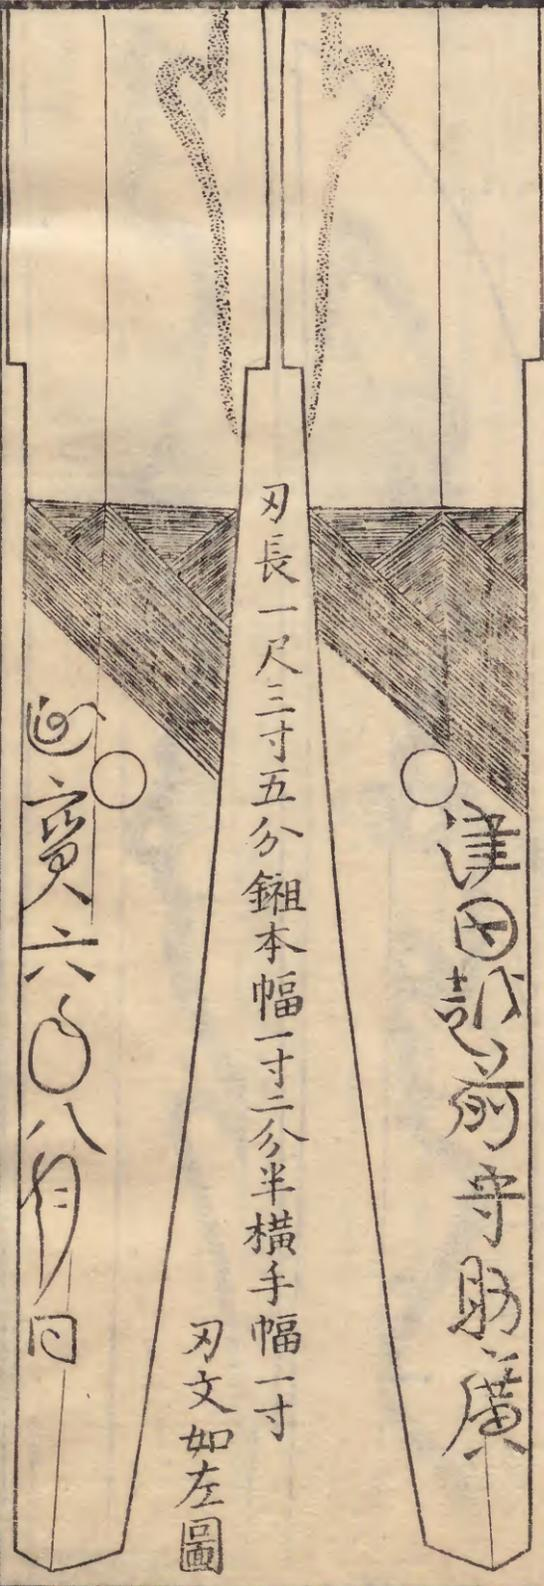 津田越前守助廣
刃長一尺三寸五分鎺本幅一寸二分半橫手幅一寸
刃文如左圖
延寳六年八月日